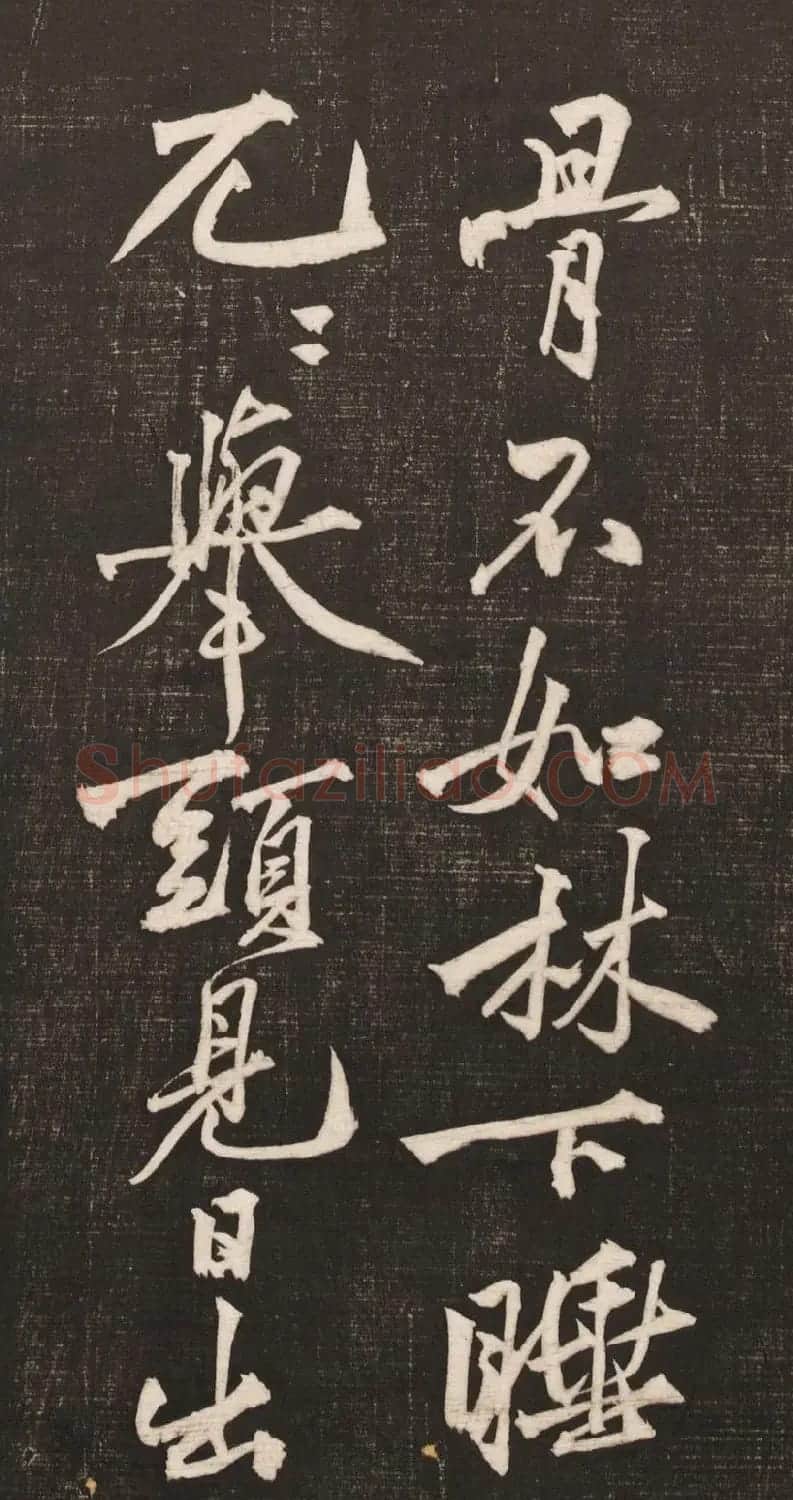 骨不如林下睡
兀〻舉頭見日出
Shufaziliao.COM